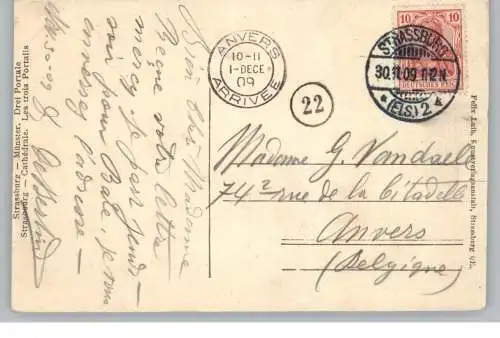 Strassburg — Münster. Drei Portale
Strasbourg — Cathédrale. Les trois Portails
30-11-09
Bien chère Madame
Reçue votre lettre
merci, je pars jeudi
soir pour Bâle, je vous
enverrai l'adresse
ANVERS
10-11
1-DECE
09
ARRIVÉE
22
10 10
DEUTSCHES REICH
STRASSBURG
30.11.09 11-12 N.
* (ELS.) 2 *
Madame G. Vandaele
74² rue de la Citadelle
Anvers
(Belgique)
Felix Luib, Kunstverlagsanstalt, Strassburg i/E.